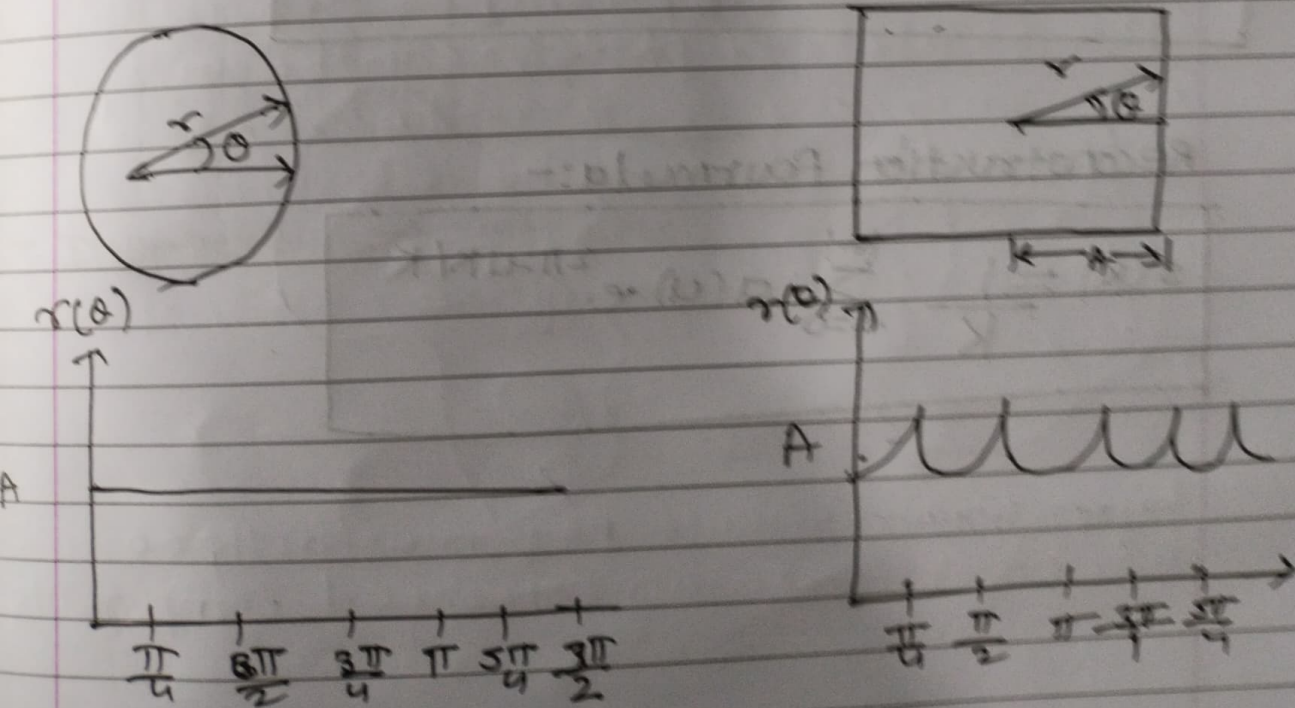 r θ
r θ
A
r(θ)
A
π/4 3π/2 3π/4 π 5π/4 3π/2
r(θ)
A
π/4 π/2 π 5π/4